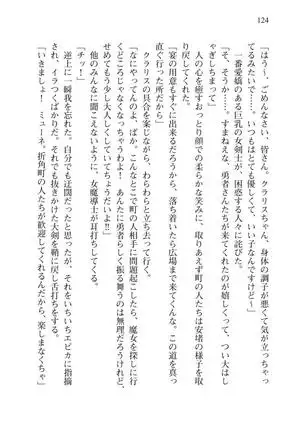 124
「はう～、ごめんなさい、皆さん。クラリスちゃん、身体の調子が悪くて気が立っちゃっ
てるみたいで……。いつもはとても優しくて、いい子なんですけど～」
一番愛嬌のある巨乳の女剣士が、困惑する人々に詫びた。
「そ、そうか……。すまねえな、勇者さんたちが来てくれたのが嬉しくって、つい大はし
ゃぎしちまって」
人の心を癒すおっとり顔での柔らかな笑みに、取りあえず町の人たちは安堵の様子を取
り戻し、
宴の用意もすぐに出来るだろうから、落ち着いたら広場まで来てくんな。この道を真っ
直ぐ行った所だから」
クラリスの具合を案じながら、わらわらと立ち去って行く。
「なにやってんのよ、ばか。こんなとこで町の人相手に問題起こしたら、魔女を探しに行
くどころじゃなくなっちゃうわよ！　あんたに勇者らしく振る舞うのは無理だろうけれど、
他のみんなに聞こえないように、女魔導士が耳打ちしてくる。
「チッ！」
逆上に一瞬我を忘れた。自分でも迂闊だったと思ったが、それをいちいちエビカに指摘
され、イラつくばかりだ。それでも抜きかけた大剣を鞘に戻し、歩き出す。
「いきましょ！　ミューネ。折角町の人たちが歓迎してくれるんだから、楽しまなくちゃ」